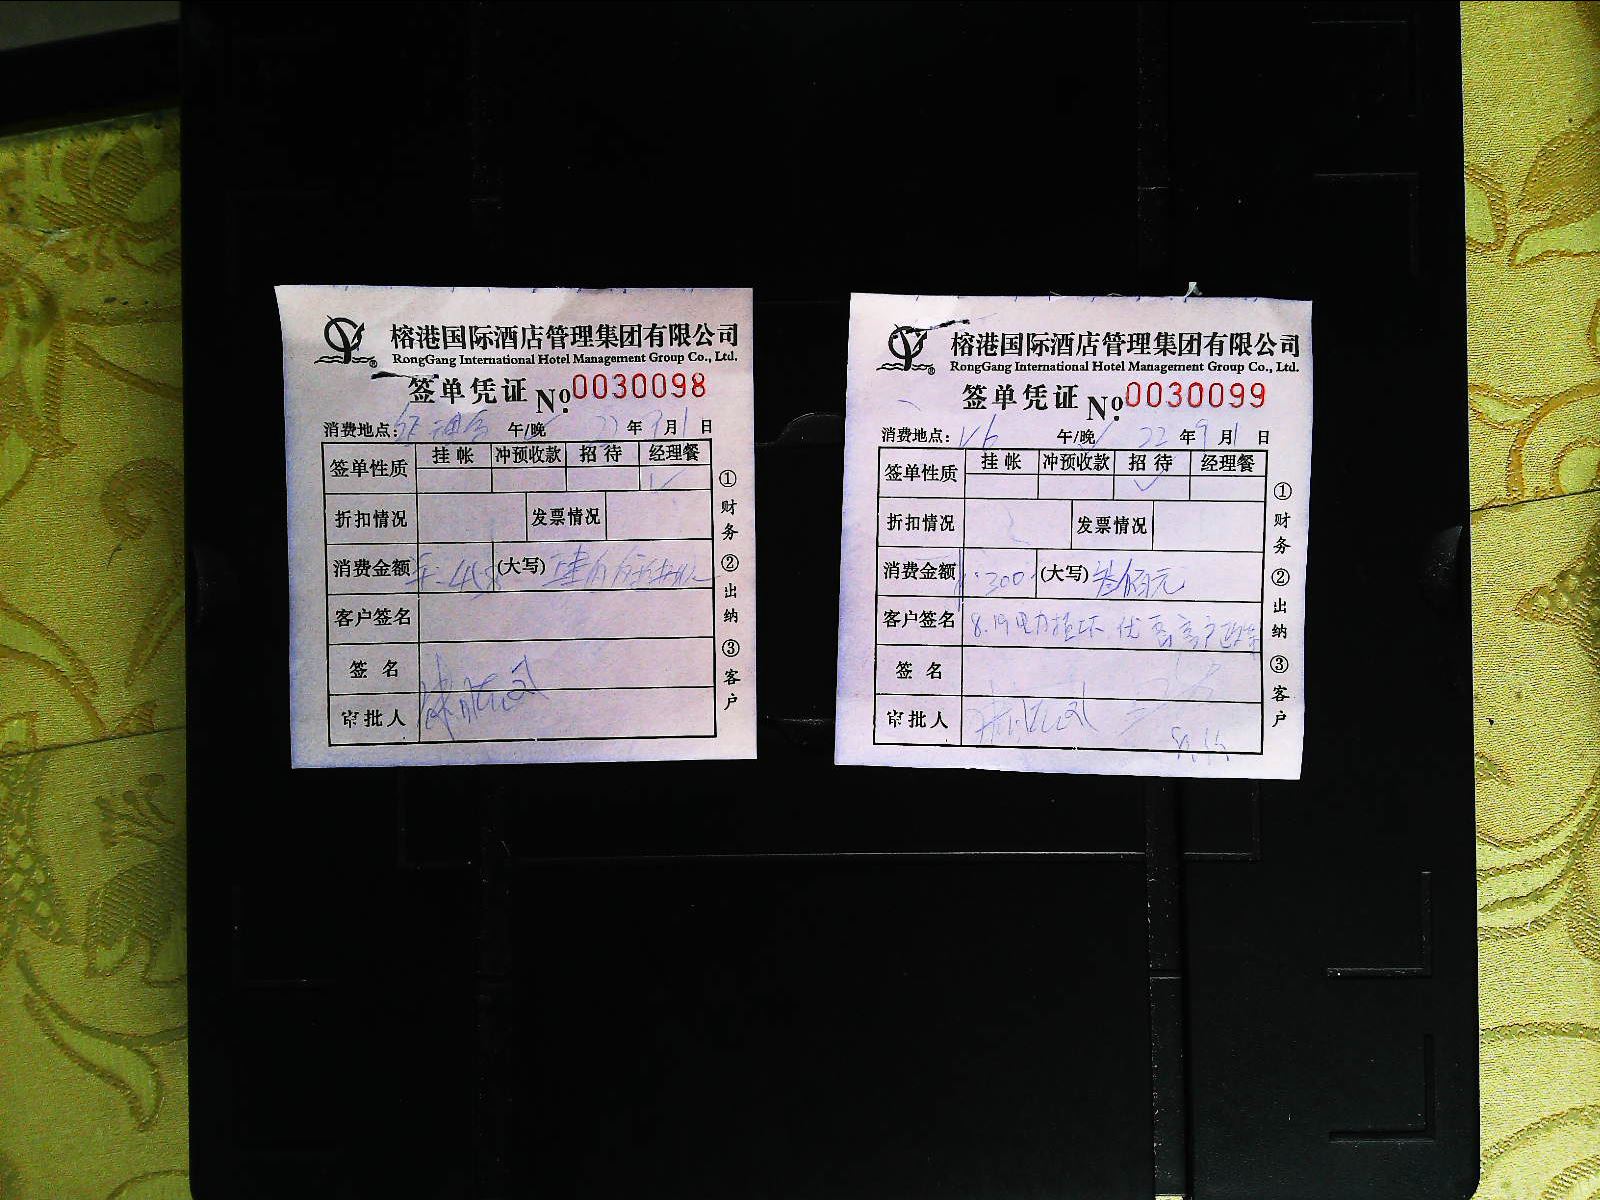 榕港国际酒店管理集团有限公司
RongGang International Hotel Management Group Co., Ltd.
签单凭证 No. 0030098
消费地点: 午/晚 22 年 9 月 1 日
签单性质 挂帐 冲预收款 招待 经理餐 ✓
折扣情况 发票情况
消费金额 (大写)
客户签名
签名
审批人
① 财务 ② 出纳 ③ 客户
榕港国际酒店管理集团有限公司
RongGang International Hotel Management Group Co., Ltd.
签单凭证 No. 0030099
消费地点: V6 午/晚 22 年 9 月 1 日
签单性质 挂帐 冲预收款 招待 ✓ 经理餐
折扣情况 发票情况
消费金额 300 (大写) 叁佰元
客户签名 8.19 电力 优惠客户
签名
审批人
① 财务 ② 出纳 ③ 客户